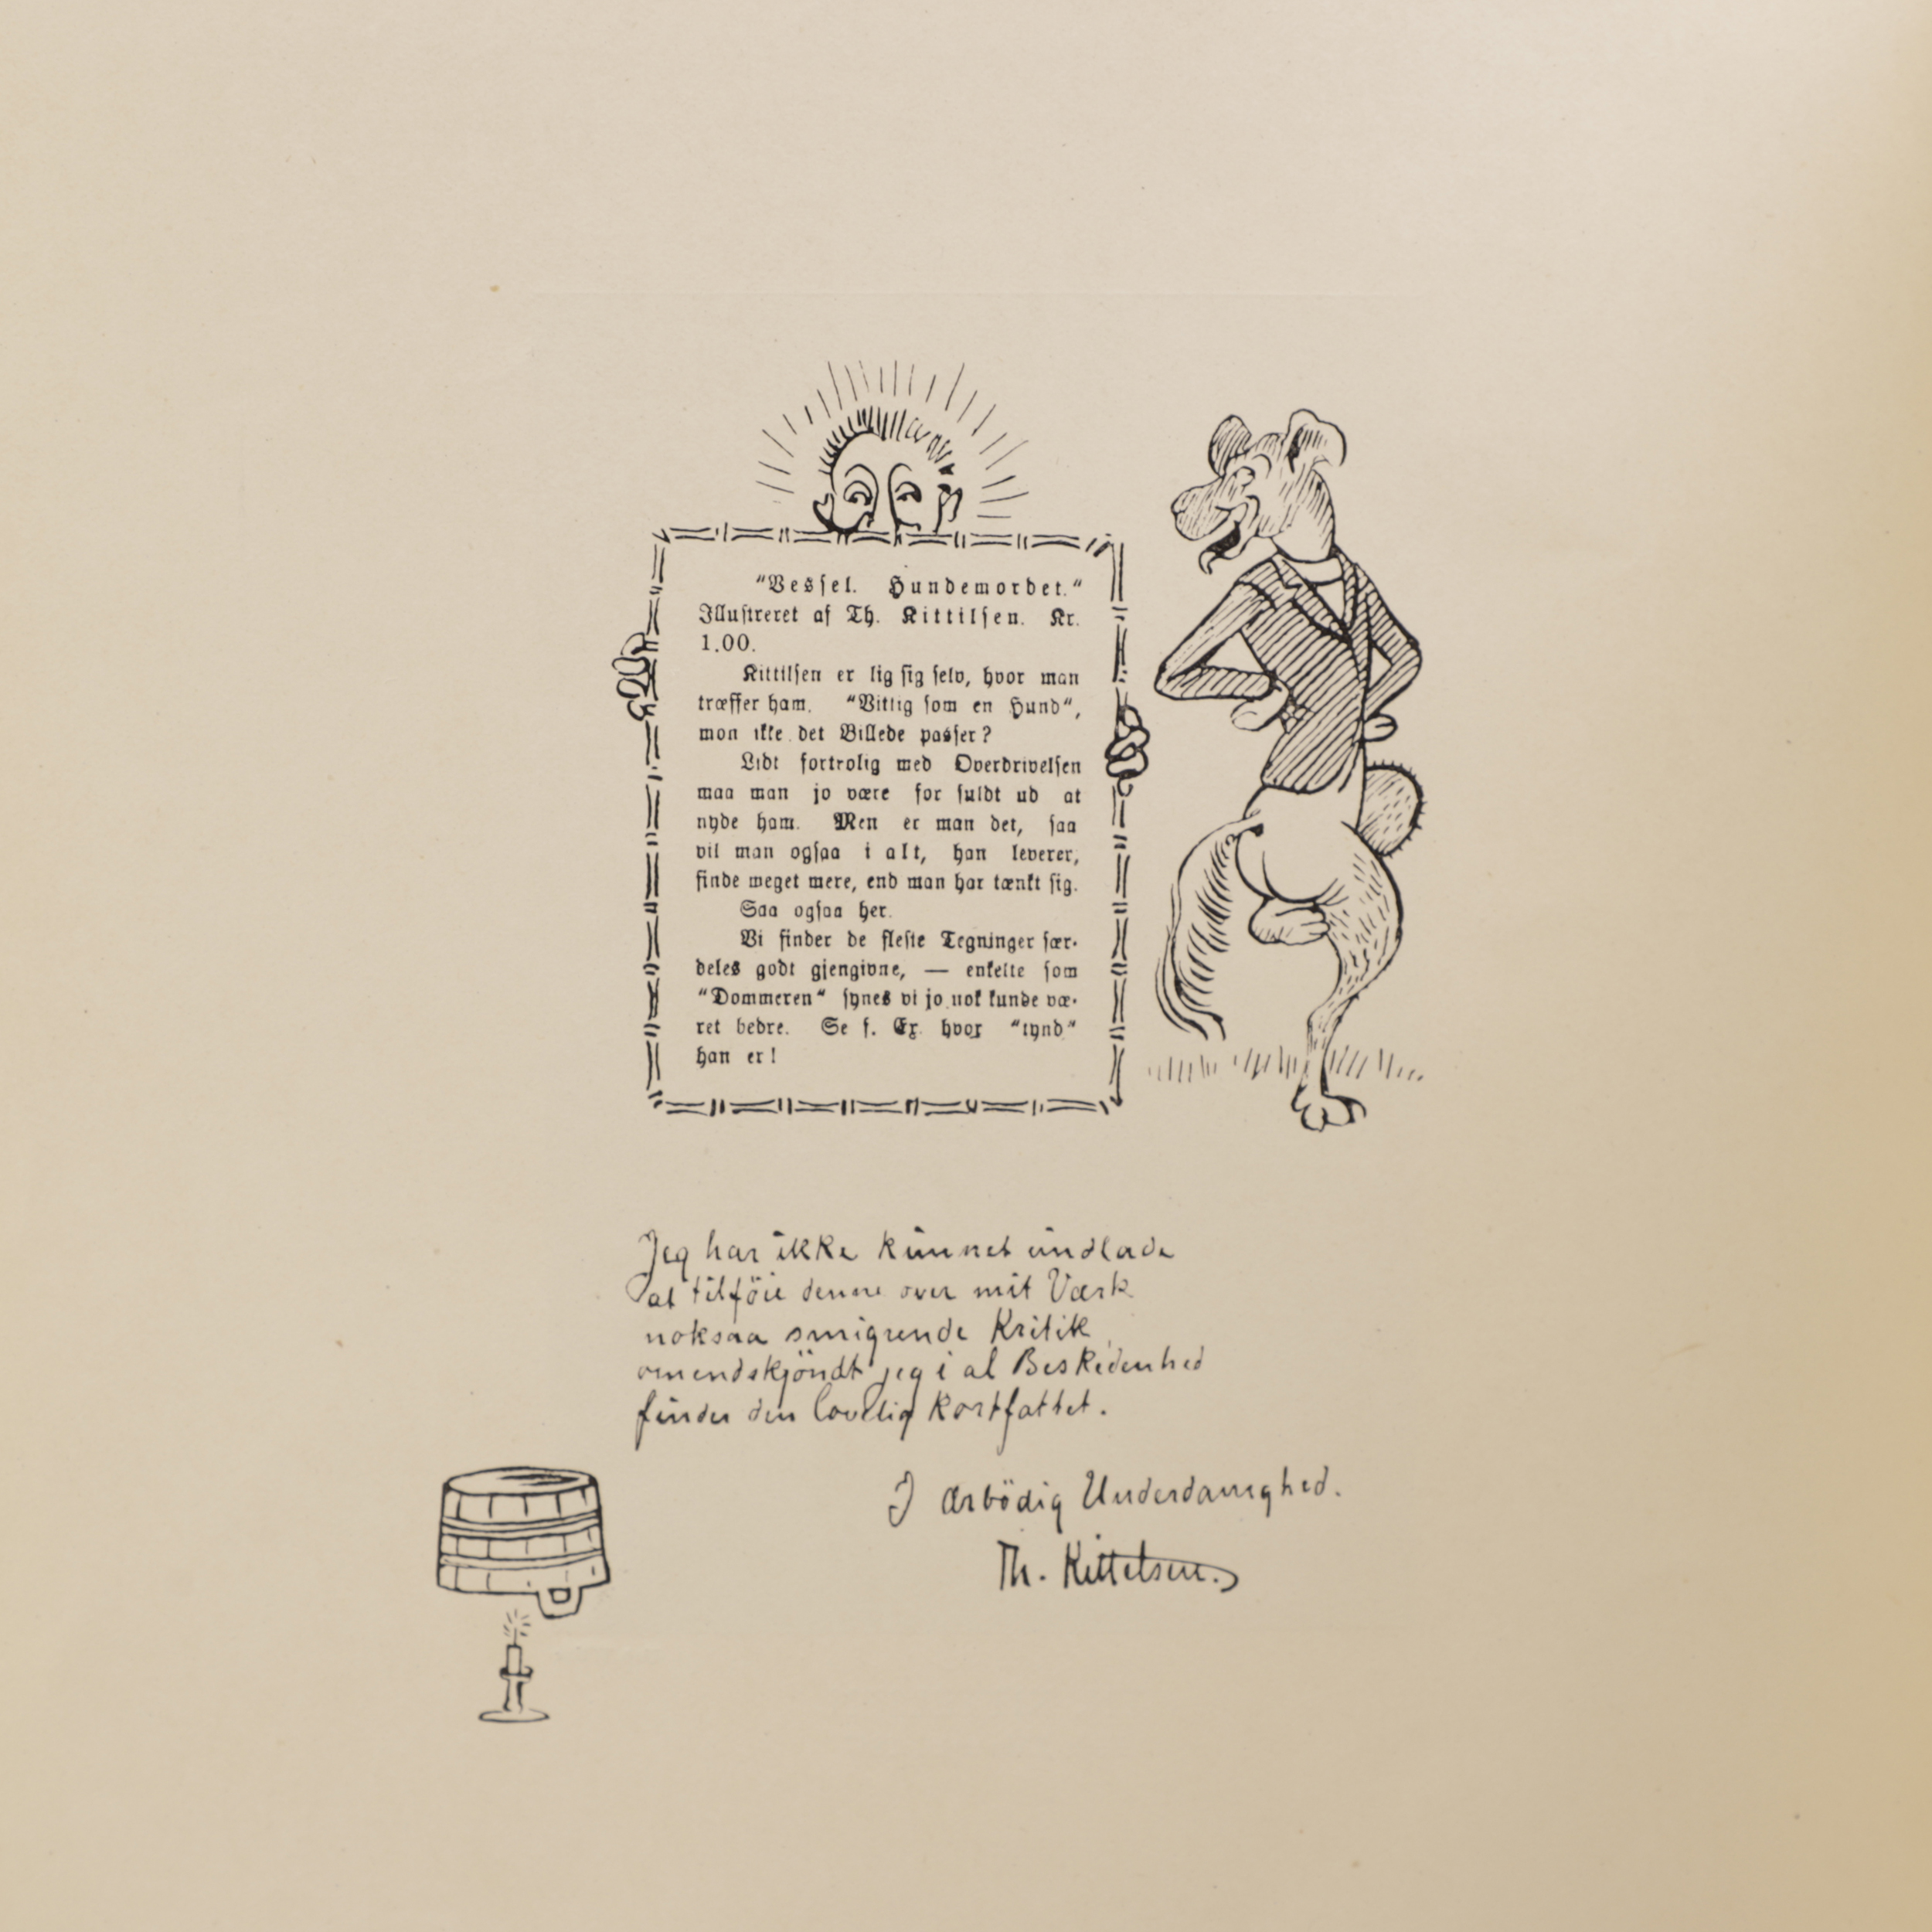 "Vessel. Hundemordet."
Illustreret af Th. Kittilsen. Kr.
1.00.
Kittilsen er lig sig selv, hvor man
træffer ham. "Vittig som en Hund",
mon ikke det Billede passer?
Lidt fortrolig med Overdrivelsen
maa man jo være for fuldt ud at
nyde ham. Men er man det, saa
vil man ogsaa i alt, han leverer,
finde meget mere, end man har tænkt sig.
Saa ogsaa her.
Vi finder de fleste Tegninger sær-
deles godt gjengivne, — enkelte som
"Dommeren" synes vi jo nok kunde væ-
ret bedre. Se f. Ex. hvor "tynd"
han er!
Jeg har ikke kunnet undlade
at tilföie denne over mit Værk
noksaa smigrende Kritik
omendskjöndt jeg i al Beskedenhed
finder den lovelig kortfattet.
I ærbödig Underdanighed.
Th. Kittelsen.